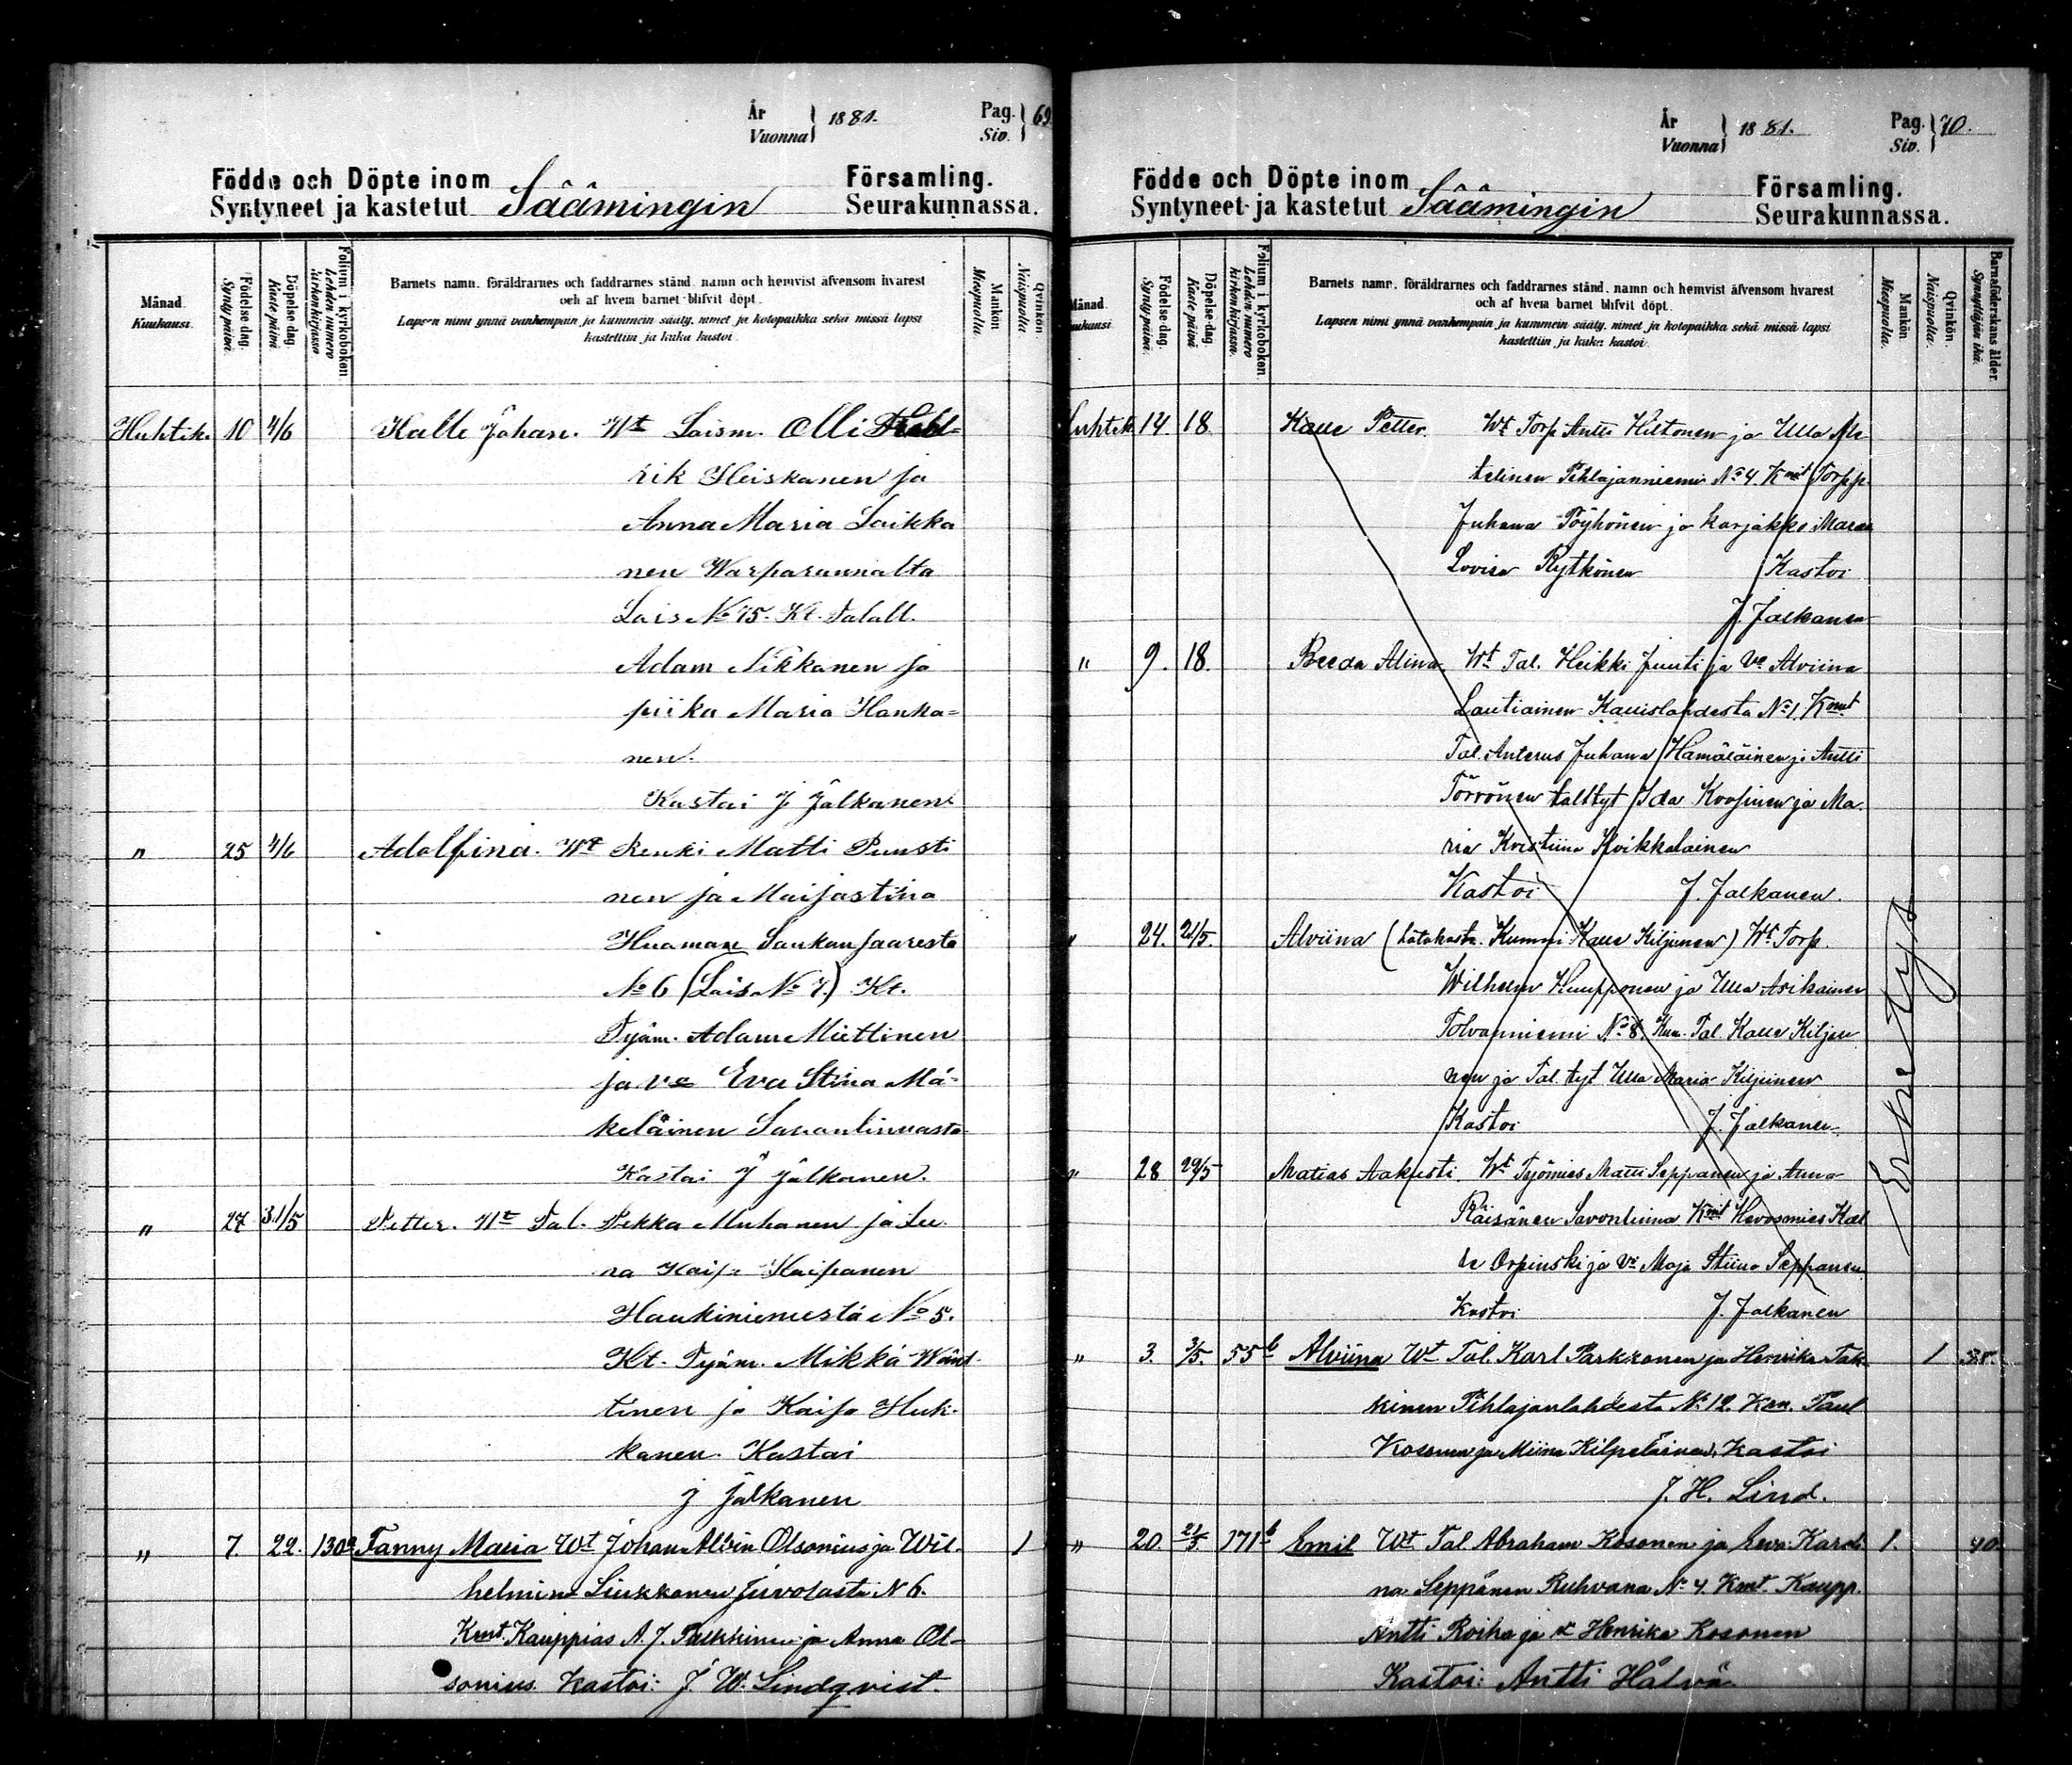 År
Vuonna } 1881.
Pag.
Siv. } 69
Födde och Döpte inom
Syntyneet ja kastetut Säämingin Församling.
Seurakunnassa.
Månad.
Kuukausi.
Födelse-dag.
Synty-päivä.
Döpelse-dag.
Kaste-päivä
Folium i kyrkoboken
Lehden numero
kirkonkirjassa
Barnets namn, föräldrarnes och faddrarnes stånd, namn och hemvist äfvensom hvarest
och af hvem barnet blifvit döpt.
Lapsen nimi ynnä vanhempain ja kummein sääty, nimet ja kotopaikka sekä missä lapsi
kastettiin ja kuka kastoi.
Mankön
Miespuolia.
Qvinkön.
Naispuolia
Huhtik. 10 4/6 Kalle Johan. Wt Loism. Olli
rik Heiskanen ja
Anna Maria Laikka
nen Warparannalta
Lois No 15. Kt. Talall.
Adam Nikkanen ja
piika Maria Hanka=
nen.
Kastoi J Jalkanen
" 25 4/6 Adolfina. Wt Renki Matti Punsti
nen ja Maijastina
Huaman Laukansaaresta
No 6 (Lois No 7.) Kt.
Työm. Adam Miettinen
ja vo Eva Stina Mä-
keläinen Savonlinnasta
Kastoi J Jalkanen.
" 27 31/5 Petter. Wt Tal. Pekka Muhonen ja Lee
na Kaisa Kaipanen
Haukiniemestä No 5.
Kt. Työm. Mikko Wänt
tinen ja Kaisa Huk-
kanen. Kastoi
J Jalkanen
" 7. 22. 130a Fanny Maria Wt Johan Alvin Olsonius ja Wil-
helmina Liukkonen Juvolasta N 6.
Kmt. Kauppias A. J. Pulkkinen ja Anna Ol-
sonius. Kastoi: J. W. Lindqvist. 1
År
Vuonna } 1881.
Pag.
Siv. } 70.
Födde och Döpte inom
Syntyneet ja kastetut Säämingin Församling.
Seurakunnassa.
Månad.
Kuukausi.
Födelse-dag.
Synty-päivä.
Döpelse-dag.
Kaste-päivä
Folium i kyrkoboken
Lehden numero
kirkonkirjassa.
Barnets namn, föräldrarnes och faddrarnes stånd, namn och hemvist äfvensom hvarest
och af hvem barnet blifvit döpt.
Lapsen nimi ynnä vanhempain ja kummein sääty, nimet ja kotopaikka sekä missä lapsi
kastettiin ja kuka kastoi.
Mankön
Miespuolia.
Qvinkön.
Naispuolia.
Barnaföderskans ålder.
Synnyttäjän ikä.
Huhtik 14. 18. Kalle Petter. Wt Torp Antti Hiltonen ja Ulla
Pihlajanniemi No 4. Kmit Torpp
Juhana Pöyhönen ja karjakko Maria
Lovisa Rytkönen Kastoi
J. Jalkanen
" 9. 18. Beeda Alina Wt Tal. Heikki Juuti ja Vo Alviina
Lautiainen Kallislahdesta No 1. Kmt
Tal. Anterus Juhana Hämäläinen ja Antti
Törrönen talltyt Ida Koopinen ja Ma.
ria Kristiina Hvikkalainen
Kastoi J. Jalkanen.
" 24. 21/5. Alviina (hätäkaste. Kummi Kalle Kiljunen) Wt Torp.
Wilhelm Kaupponen ja Ulla Asikainen
Tolvanniemi No 8. Kum. Tal. Kalle Kiljuu
nen ja Tal. tyt Ulla Maria Kiljunen
Kastoi J. Jalkanen
" 28 29/5 Matias Aakusti. Wt Työmies Matti Seppänen ja Anna
Räisänen Savonlinna Kmit Hevosmies Kal
le Orpinski ja Vo Maja Stiina Seppänen
Kastoi J. Jalkanen
" 3. 3/5. 55b Alviina Wt Tal. Karl Parkkonen ja Henrika Tak-
kinen Pihlajanlahdesta No 12. Km. Paul
Kossunen ja Miina Kilpeläinen. Kastoi
J. H. Lind. 1
" 20. 21/5. 171b Emil Wt Tal Abraham Kosonen ja Eeva Karoli
na Seppänen Ruhvana No 4. Kmt. Kaupp.
Antti Roiha ja Henrika Kosonen
Kastoi: Antti Halvä 1. 40.